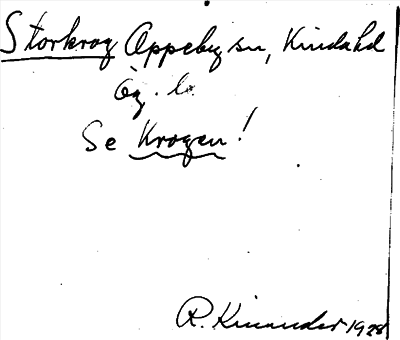 Storkrog Oppeby sn, Kinda hd
Ög. l.
Se Krogen!
R. Kinander 1928